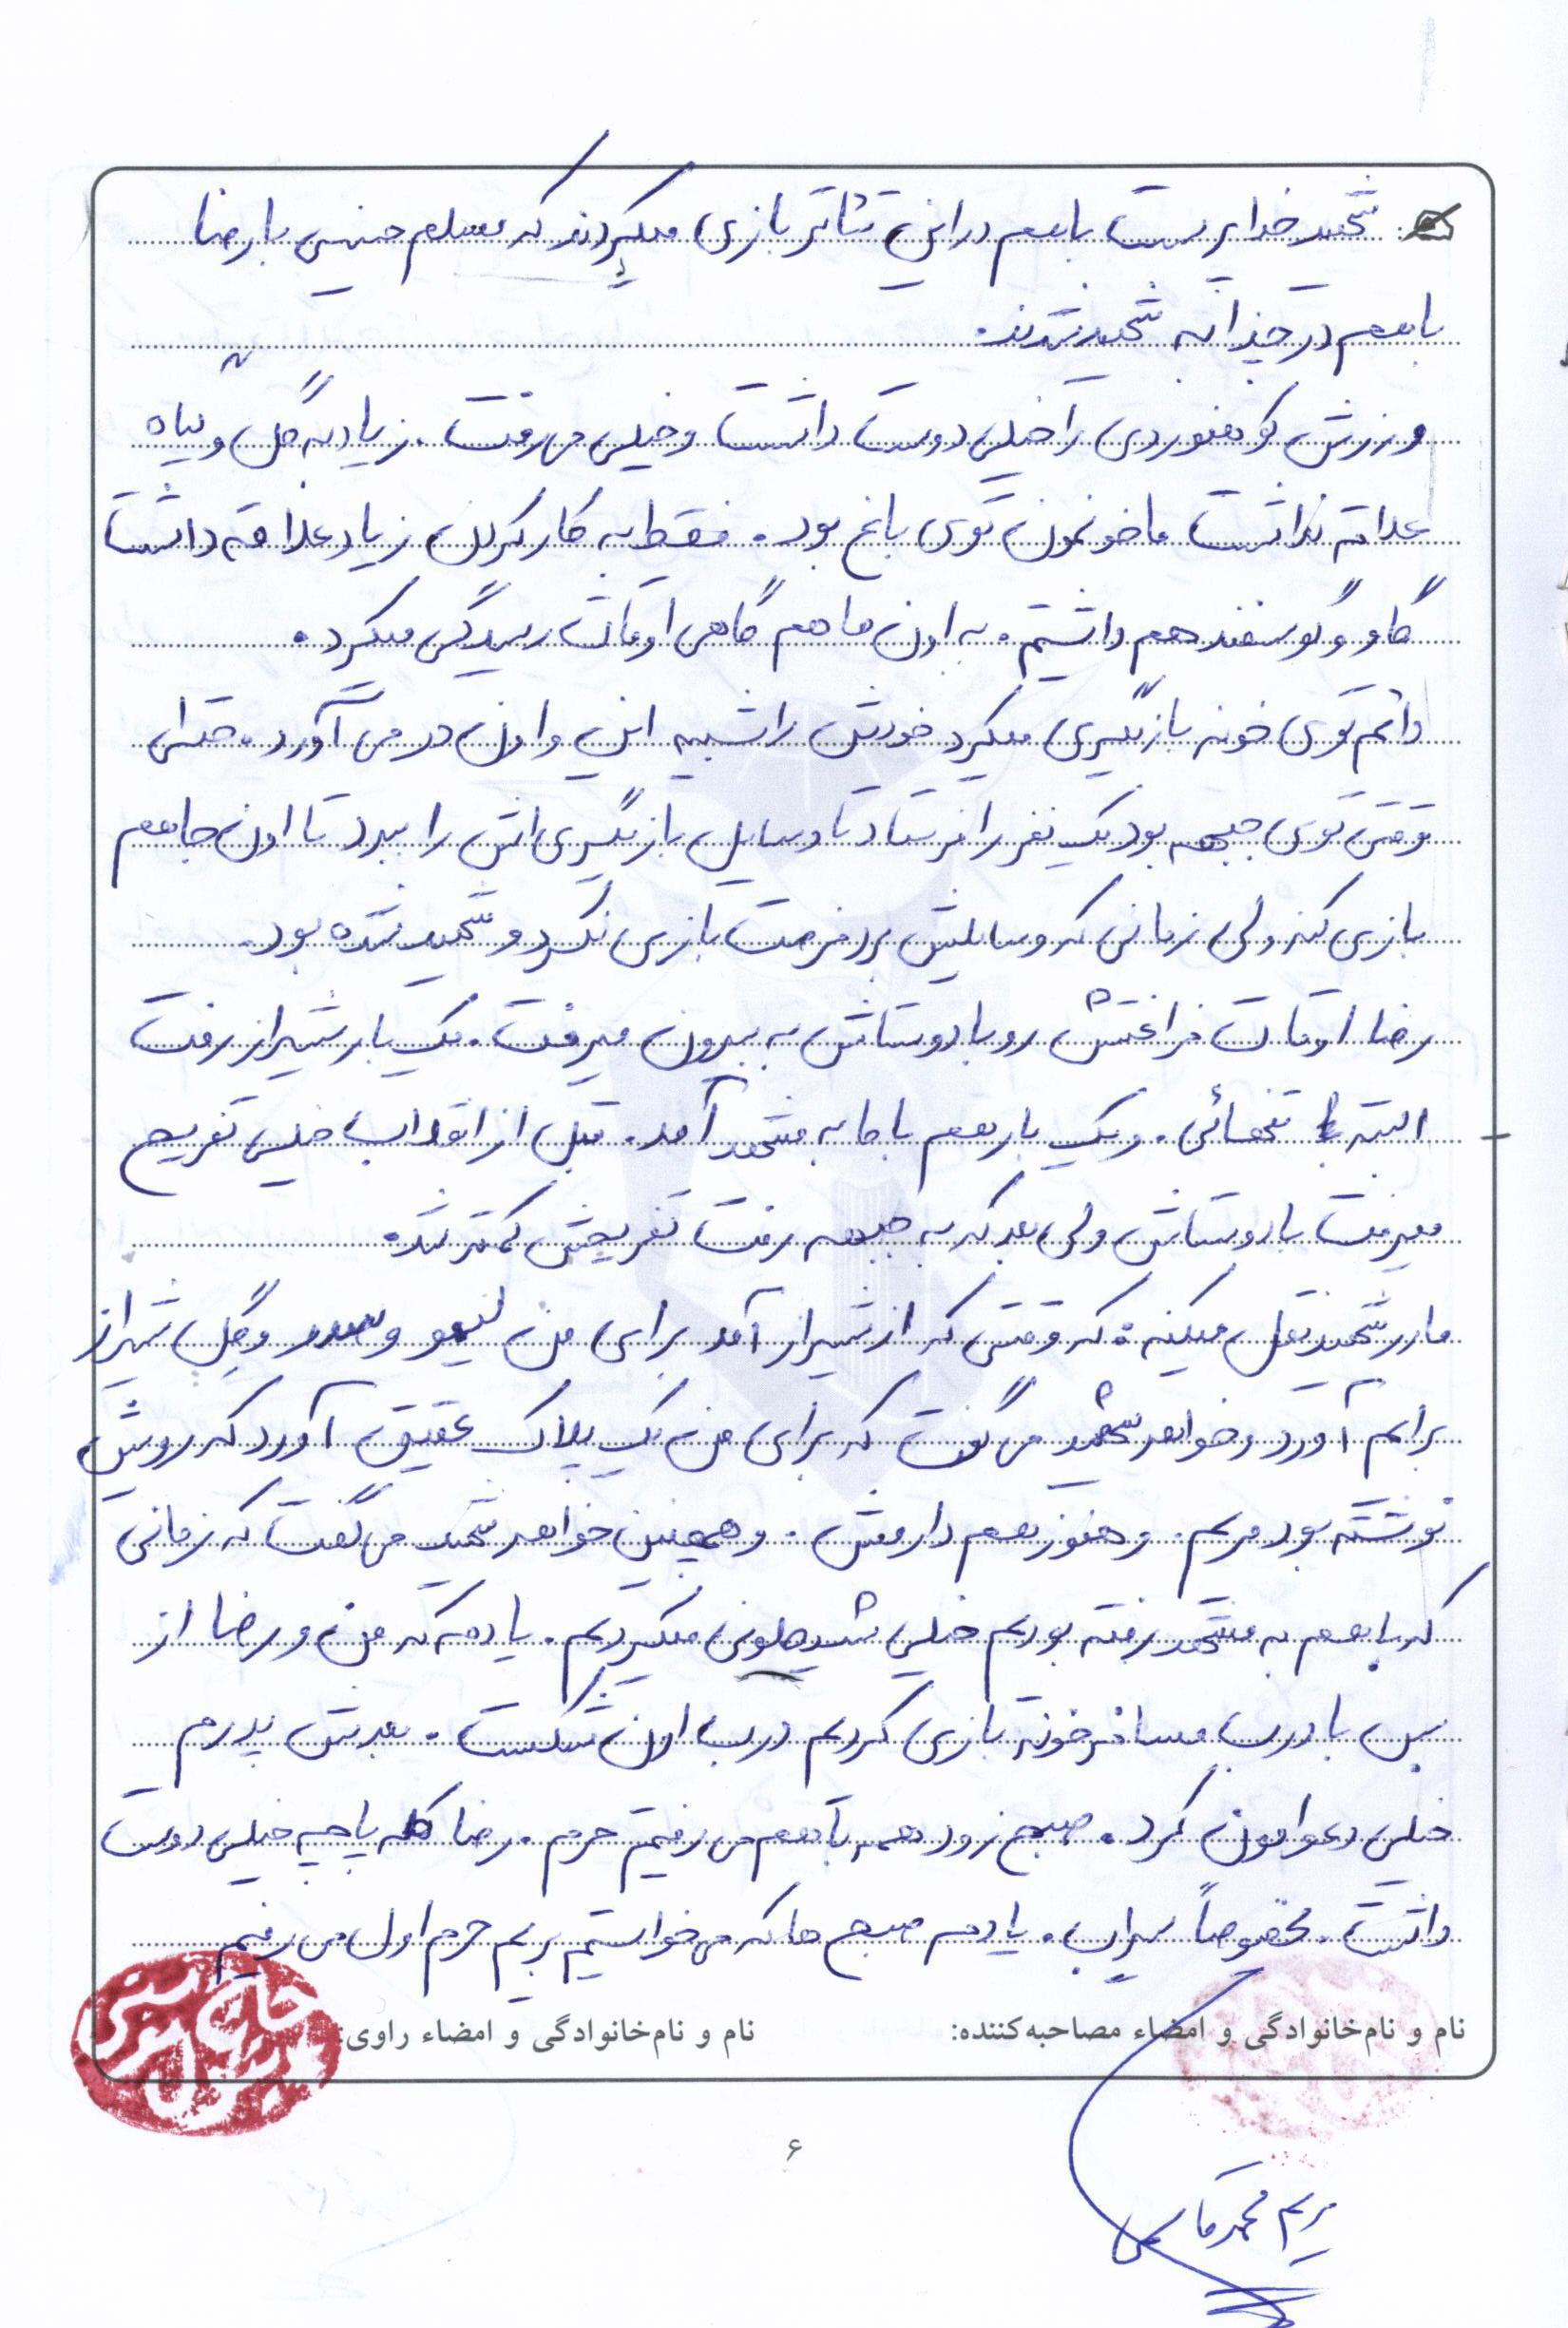 شهید خداپرست باهم در این تئاتر بازی میکردند که مسلم حنیس با رضا
باهم در جذابه شهید شدند.
ورزش کوهنوردی را خیلی دوست داشت و خیلی می رفت. زیاد به گل و گیاه
علاقه نداشت ما خونمون توی باغ بود. فقط به کار کردن زیاد علاقه داشت
گاو و گوسفند هم داشتیم. به اون ها هم گاهی اوقات رسیدگی میکرد.
دائم توی خونه بازیگری میکرد خودش را شبیه این و اون در می آورد. حتی
وقتی توی جبهه بود یک نفر را فرستاد تا وسایل بازیگری اش را ببرد تا اون جا هم
بازی کنه ولی زمانی که وسایلش برد فرصت بازی نکرد و شهید شده بود.
رضا اوقات فراغتش رو با دوستاش به بیرون میرفت. یک بار شیراز رفت
البته تنهائی. و یک بار هم با ما به مشهد آمد. قبل از انقلاب خیلی تفریح
میرفت با دوستاش ولی بعد که به جبهه رفت تفریحش کمتر شد.
مادر شهید نقل میکنه: که وقتی که از شیراز آمد برای من لیمو و و گل شیراز
برایم آورد و خواهر شهید می گفت که برای من یک پلاک عقیق آورد که رویش
نوشته بود مریم. و هنوز هم دارمش. و همچنین خواهر شهید می گفت که زمانی
که باهم به مشهد رفته بودیم خیلی شیطونی میکردیم. یادمه که من و رضا از
بس با درب مسافرخونه بازی کردیم درب اون شکست. بعدش پدرم
خیلی دعوامون کرد. صبح زود همه باهم می رفتیم حرم. رضا کله پاچه خیلی دوست
داشت. مخصوصاً سیراب. یادمه صبح ها که می خواستیم بریم حرم اول می رفتیم
نام و نام‌خانوادگی و امضاء مصاحبه‌کننده:
نام و نام‌خانوادگی و امضاء راوی:
۶
مریم محمد قاسمی